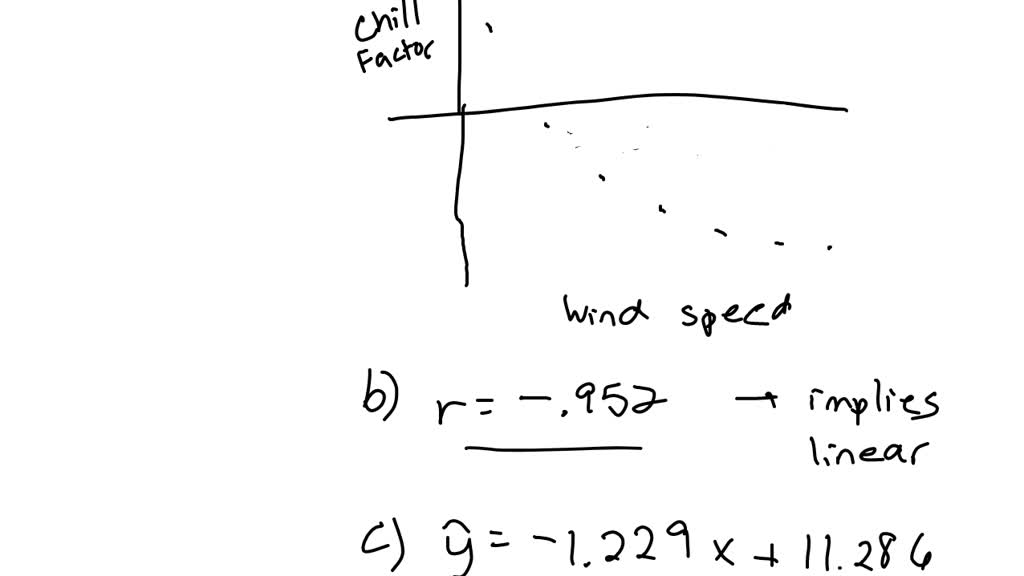 Chill
Factor
Wind speed
b) r = -.952 → implies
linear
c) ŷ = -1.229x + 11.286